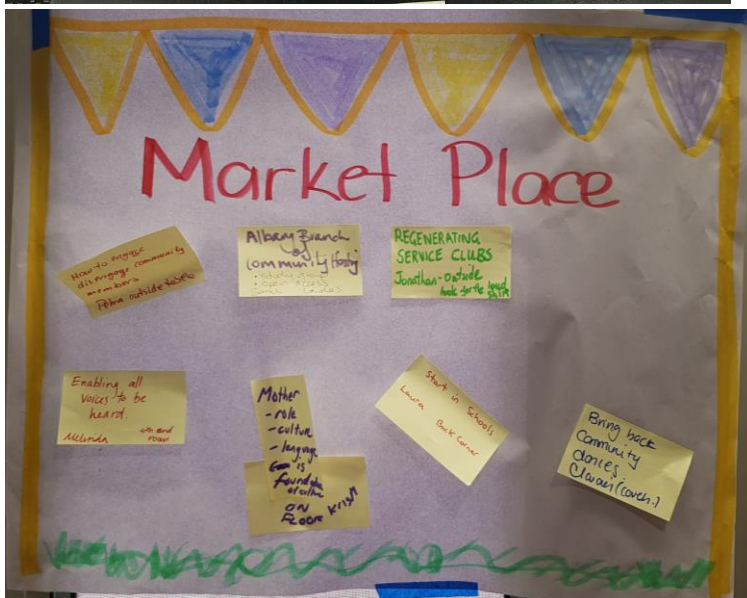 Market Place
How to engage
disengage community
members
outside
Albany Branch
of
Community
• open
REGENERATING
SERVICE CLUBS
Jonathan - outside
look for the loud
shirt
Enabling all
voices to be
heard.
Melinda
end
room
Mother
- role
- culture
- language
is
foundation
of culture
ON
FLOOR
Start in Schools
Laura
Back Corner
Bring back
Community
dances.
(couch.)